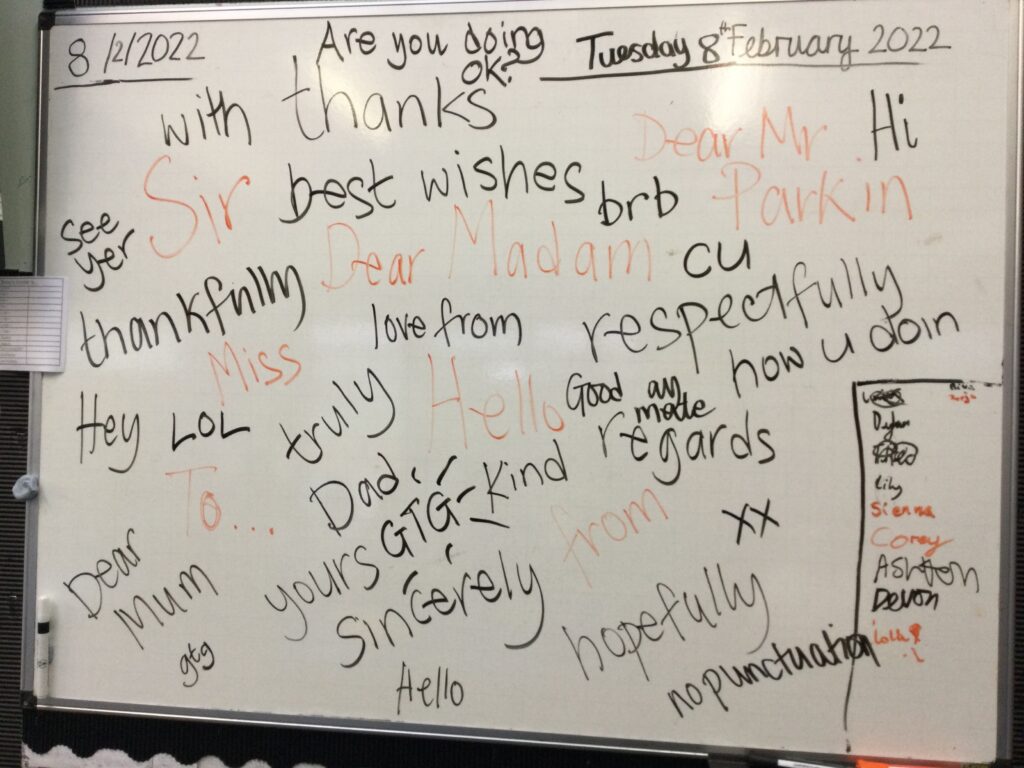 8/2/2022
Are you doing
OK?
Tuesday 8th February 2022
with thanks
Dear Mr.
Parkin
Hi
Sir
best wishes
brb
see
yer
Dear Madam
cu
thankfully
love from
respectfully
Miss
Hello
how u doin
Hey
LOL
truly
Good
mode
regards
To...
Dad
GTG
Kind
from
xx
Dear
Mum
yours
sincerely
hopefully
gtg
Hello
no punctuation
Dylan
Lily
Sienna
Corey
Ashton
Devon